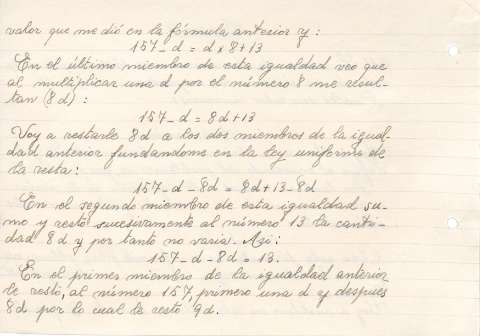 valor que me dió en la fórmula anterior y:
157 - d = d x 8 + 13
En el último miembro de esta igualdad veo que
al multiplicar una d por el número 8 me resul-
tan (8d):
157 - d = 8d + 13
Voy a restarle 8d a los dos miembros de la igual-
dad anterior fundandome en la ley uniforme de
la resta:
157 - d - 8d = 8d + 13 - 8d
En el segundo miembro de esta igualdad su-
mo y resto sucesivamente al número 13 la canti-
dad 8d y por tanto no varia. Asi:
157 - d - 8d = 13.
En el primer miembro de la igualdad anterior
le restó, al número 157, primero una d y después
8d por lo cual la resto 9d.